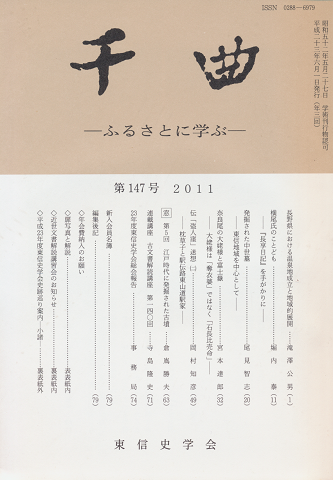 ISSN 0288-6979
昭和五十二年五月二十七日 学術刊行物認可
平成二十三年六月一日発行(年三回)
千曲
―ふるさとに学ぶ―
第147号 2011
長野県における温泉地成立と地域的展開……滝澤公男(1)
横尾氏のことども……堀内泰(11)
―『長享日記』を手がかりに―
発掘された中世墓……尾見智志(20)
―東信地域を中心として―
奈良尾の大姥様と富士嶽……宮本達郎(32)
―大姥様は「奪衣婆」ではなく「石長比売命」―
伝「盗人道」送想(二)……岡村知彦(49)
―枕草子と駅伝路東山道駅家―
窓 第5回 江戸時代に発掘された古墳……倉嶌勝夫(63)
連載講座 古文書解読講座 第一四〇回……寺島隆史(71)
23年度東信史学会総会報告……事務局(74)
新入会員名簿……(79)
編集後記……(79)
◇年会費納入のお願い
◇扉写真と解説……表表紙内
◇近世文書解読講習会のお知らせ……裏表紙内
◇平成23年度東信史学会史跡巡り案内・小諸……裏表紙外
東信史学会